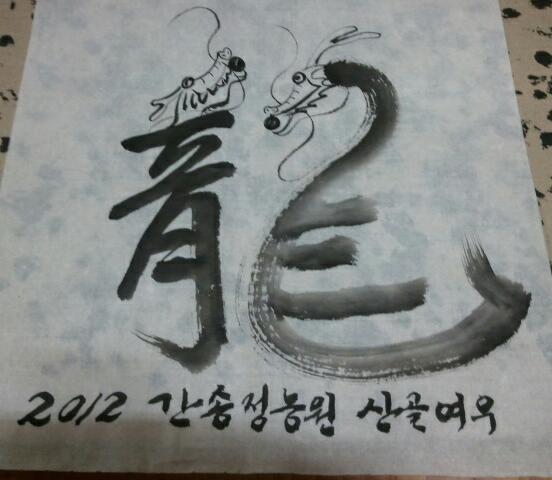 龍
2012 간송정농원 산골여우